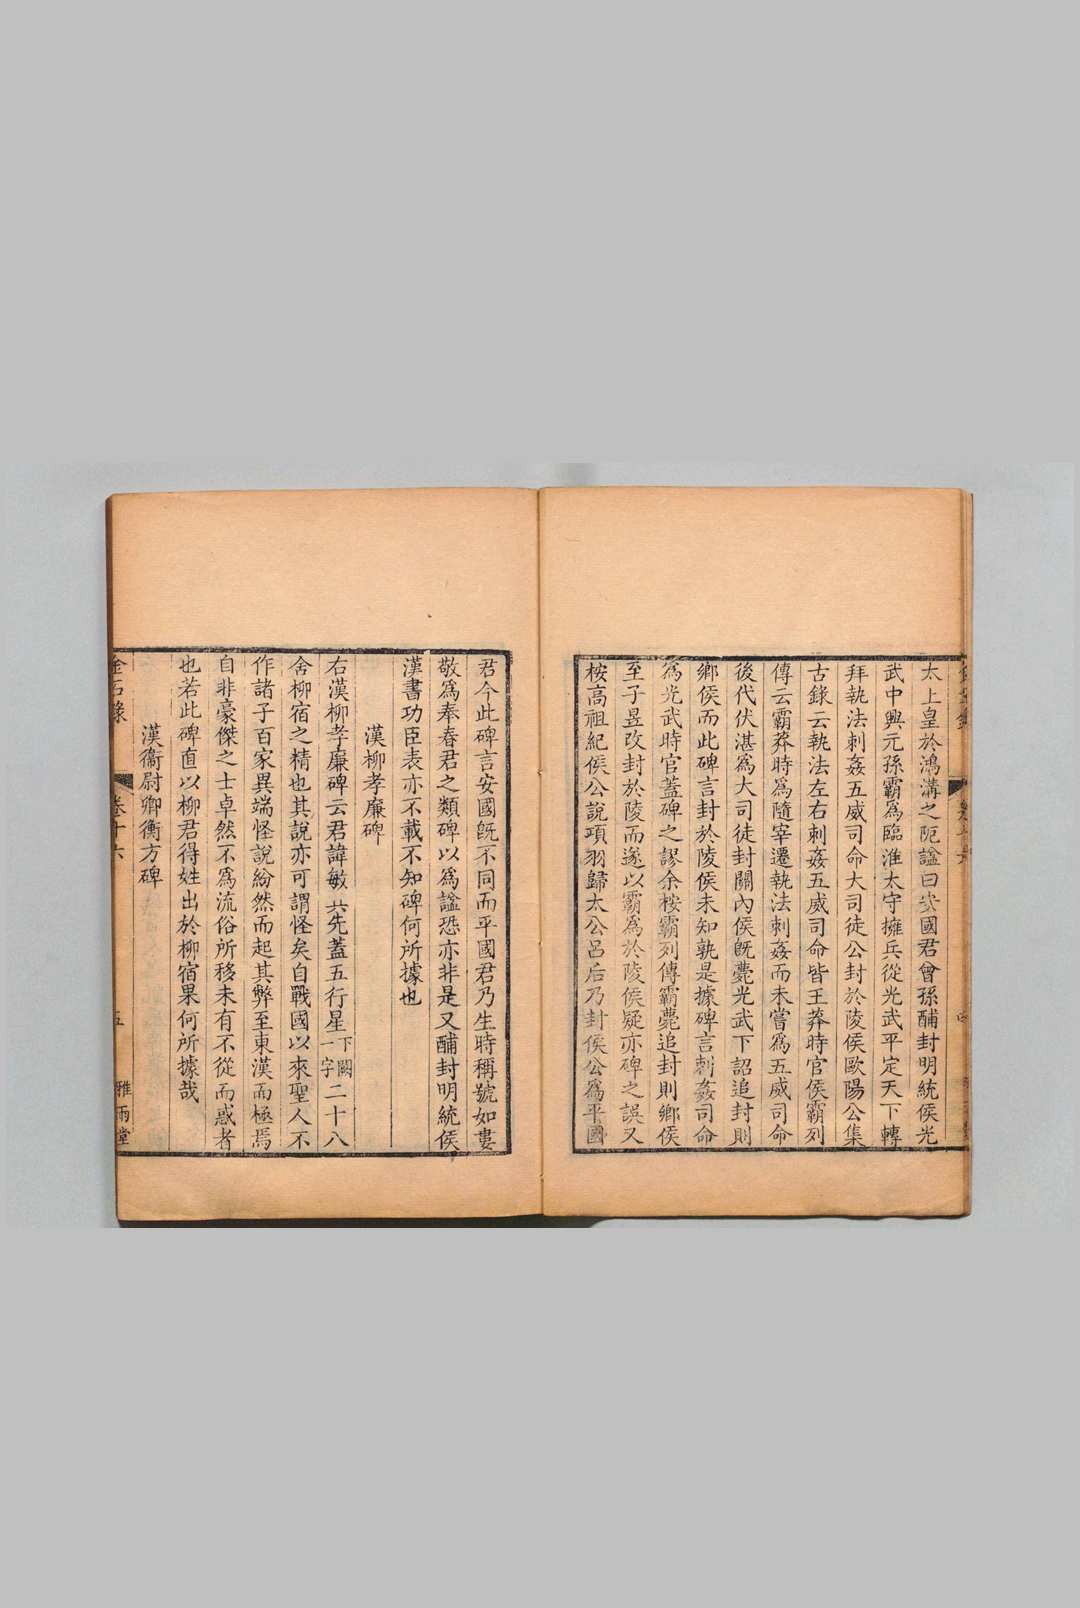 太上皇於鴻溝之阨謚曰安國君曾孫酺封明統侯光
武中興元孫霸爲臨淮太守擁兵從光武平定天下轉
拜執法刺姦五威司命大司徒公封於陵侯歐陽公集
古錄云執法左右刺姦五威司命皆王莽時官侯霸列
傳云霸莽時爲隨宰遷執法刺姦而未嘗爲五威司命
後代伏湛爲大司徒封關內侯旣薨光武下詔追封則
鄉侯而此碑言封於陵侯未知孰是據碑言刺姦司命
爲光武時官蓋碑之謬余桉霸列傳霸薨追封則鄉侯
至子昱改封於陵而遂以霸爲於陵侯疑亦碑之誤又
桉高祖紀侯公說項羽歸太公呂后乃封侯公爲平國
四
君今此碑言安國旣不同而平國君乃生時稱號如婁
敬爲奉春君之類碑以爲謚恐亦非是又酺封明統侯
漢書功臣表亦不載不知碑何所據也
漢柳孝廉碑
右漢柳孝廉碑云君諱敏
先蓋五行星下闕一字二十八
舍柳宿之精也其說亦可謂怪矣自戰國以來聖人不
作諸子百家異端怪說紛然而起其弊至東漢而極焉
自非豪傑之士卓然不爲流俗所移未有不從而惑者
也若此碑直以柳君得姓出於柳宿果何所據哉
漢衞尉卿衡方碑
金石錄
卷十六
五
雅雨堂